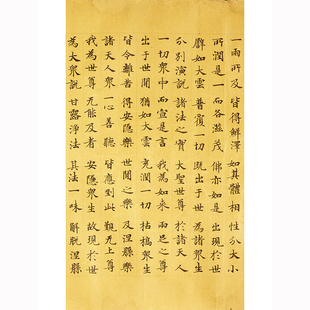 一雨所及 皆得鮮澤 如其體相 性分大小
所潤是一 而各滋茂 佛亦如是 出現於世
譬如大雲 普覆一切 既出于世 為諸眾生
分別演說 諸法之實 大聖世尊 於諸天人
一切眾中 而宣是言 我為如來 兩足之尊
出于世間 猶如大雲 充潤一切 枯槁眾生
皆令離苦 得安隱樂 世間之樂 及涅槃樂
諸天人眾 一心善聽 皆應到此 覲无上尊
我為世尊 无能及者 安隱眾生 故現於世
為大眾說 甘露淨法 其法一味 解脫涅槃